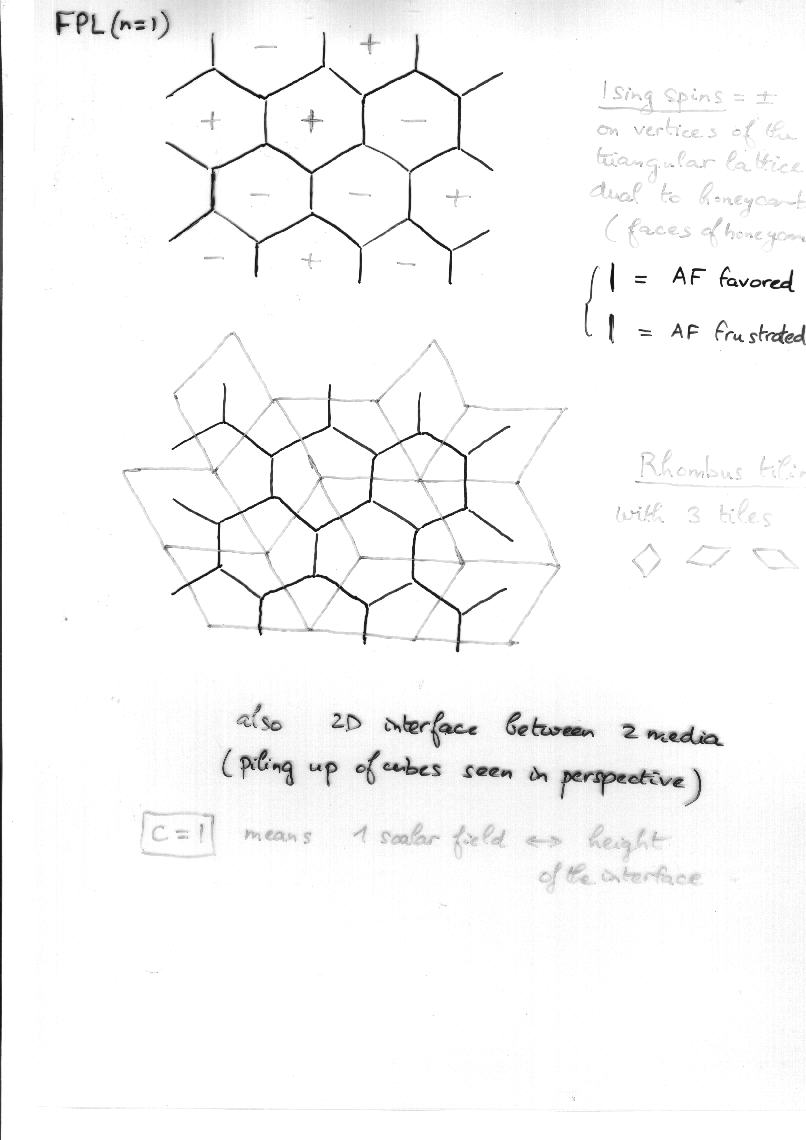 FPL(n=1)
- +
+ + -
- - +
- + -
Ising spins = ±
on vertices of the
triangular lattice
dual to
(faces of
| = AF favored
| = AF frustrated
Rhombus
with 3 tiles
also 2D interface between 2 media
(piling up of cubes seen in perspective)
c=1 means 1 scalar field ↔ height
of the interface